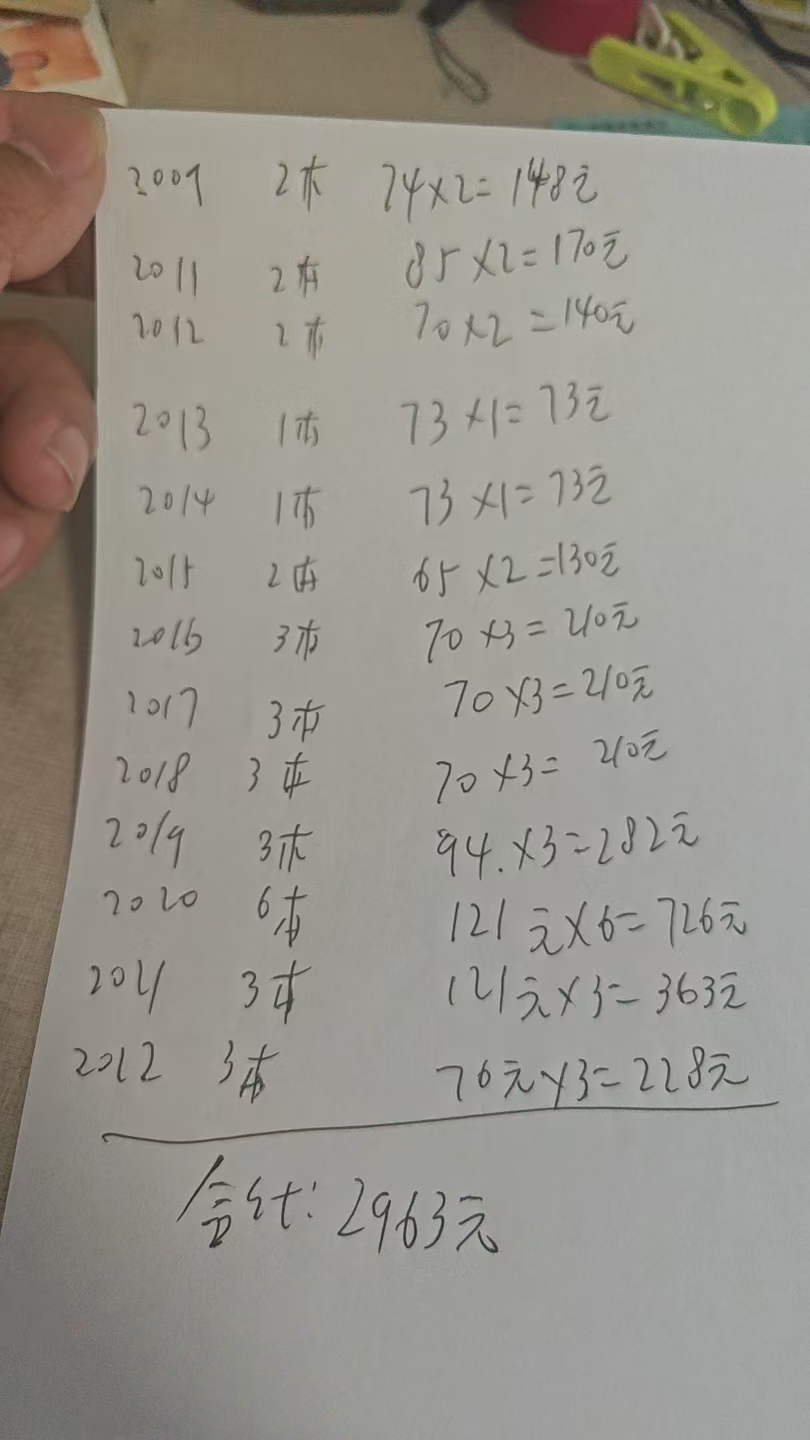 2009 2本 74×2=148元
2011 2本 85×2=170元
2012 2本 70×2=140元
2013 1本 73×1=73元
2014 1本 73×1=73元
2015 2本 65×2=130元
2016 3本 70×3=210元
2017 3本 70×3=210元
2018 3本 70×3= 210元
2019 3本 94.×3=282元
2020 6本 121元×6=726元
2021 3本 121元×3=363元
2012 3本 76元×3=228元
合计:2963元